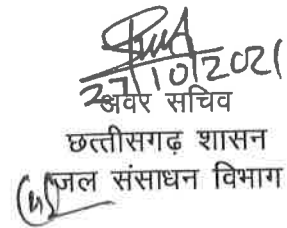 27/10/2021
अवर सचिव
छत्तीसगढ़ शासन
जल संसाधन विभाग